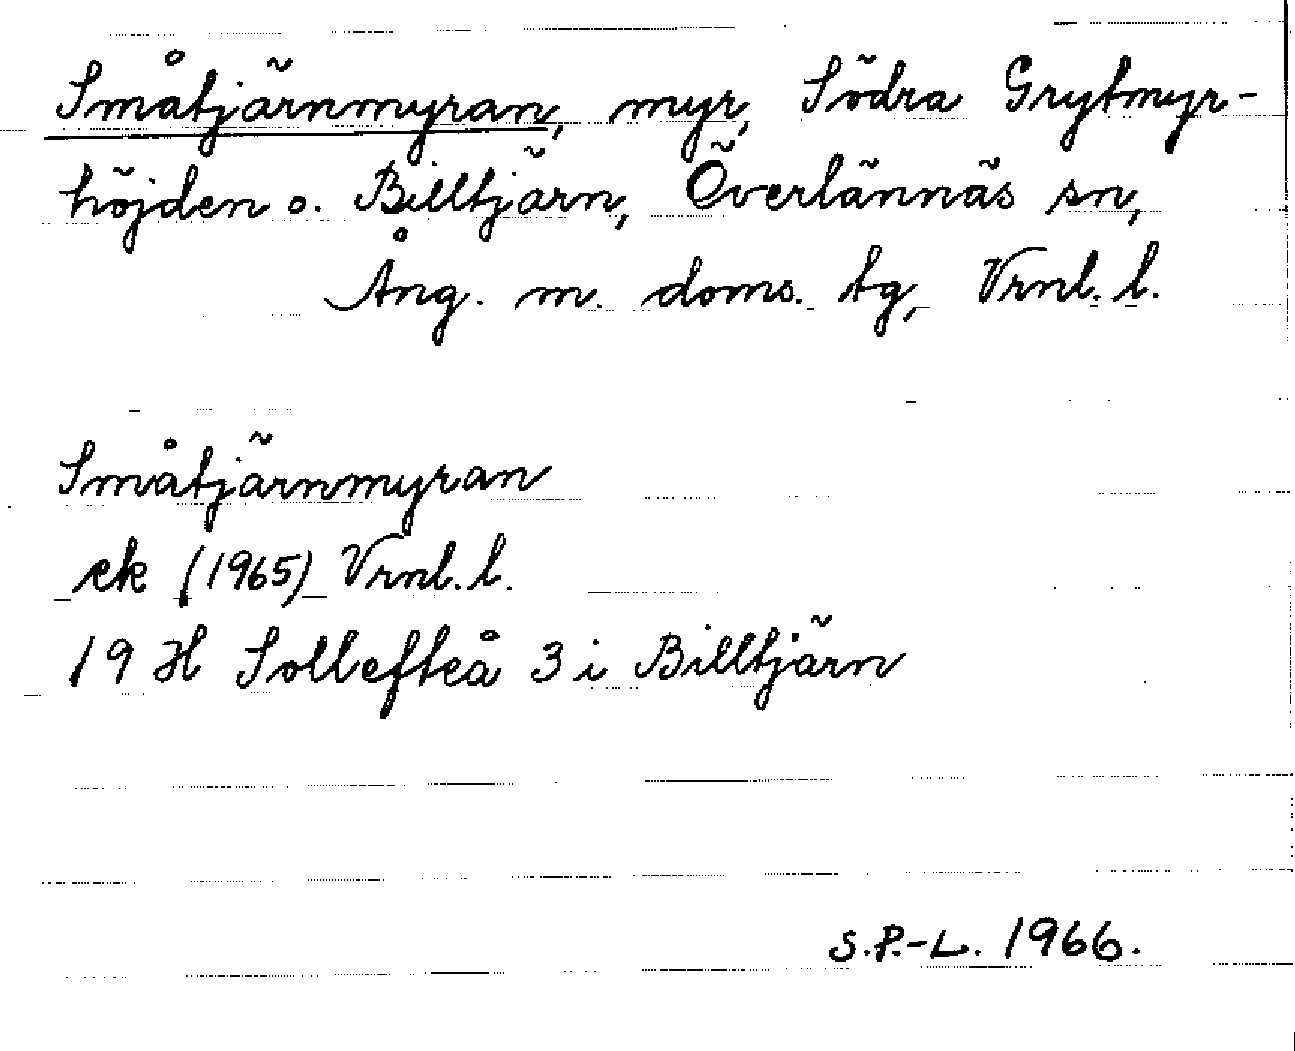 Småtjärnmyran, myr, Södra Grytmyr-
höjden o. Billtjärn, Överlännäs sn,
Ång. m. doms. tg, Vrnl. l.
Småtjärnmyran
ek (1965) Vrnl. l.
19 H Sollefteå 3 i Billtjärn
S.P.-L. 1966.